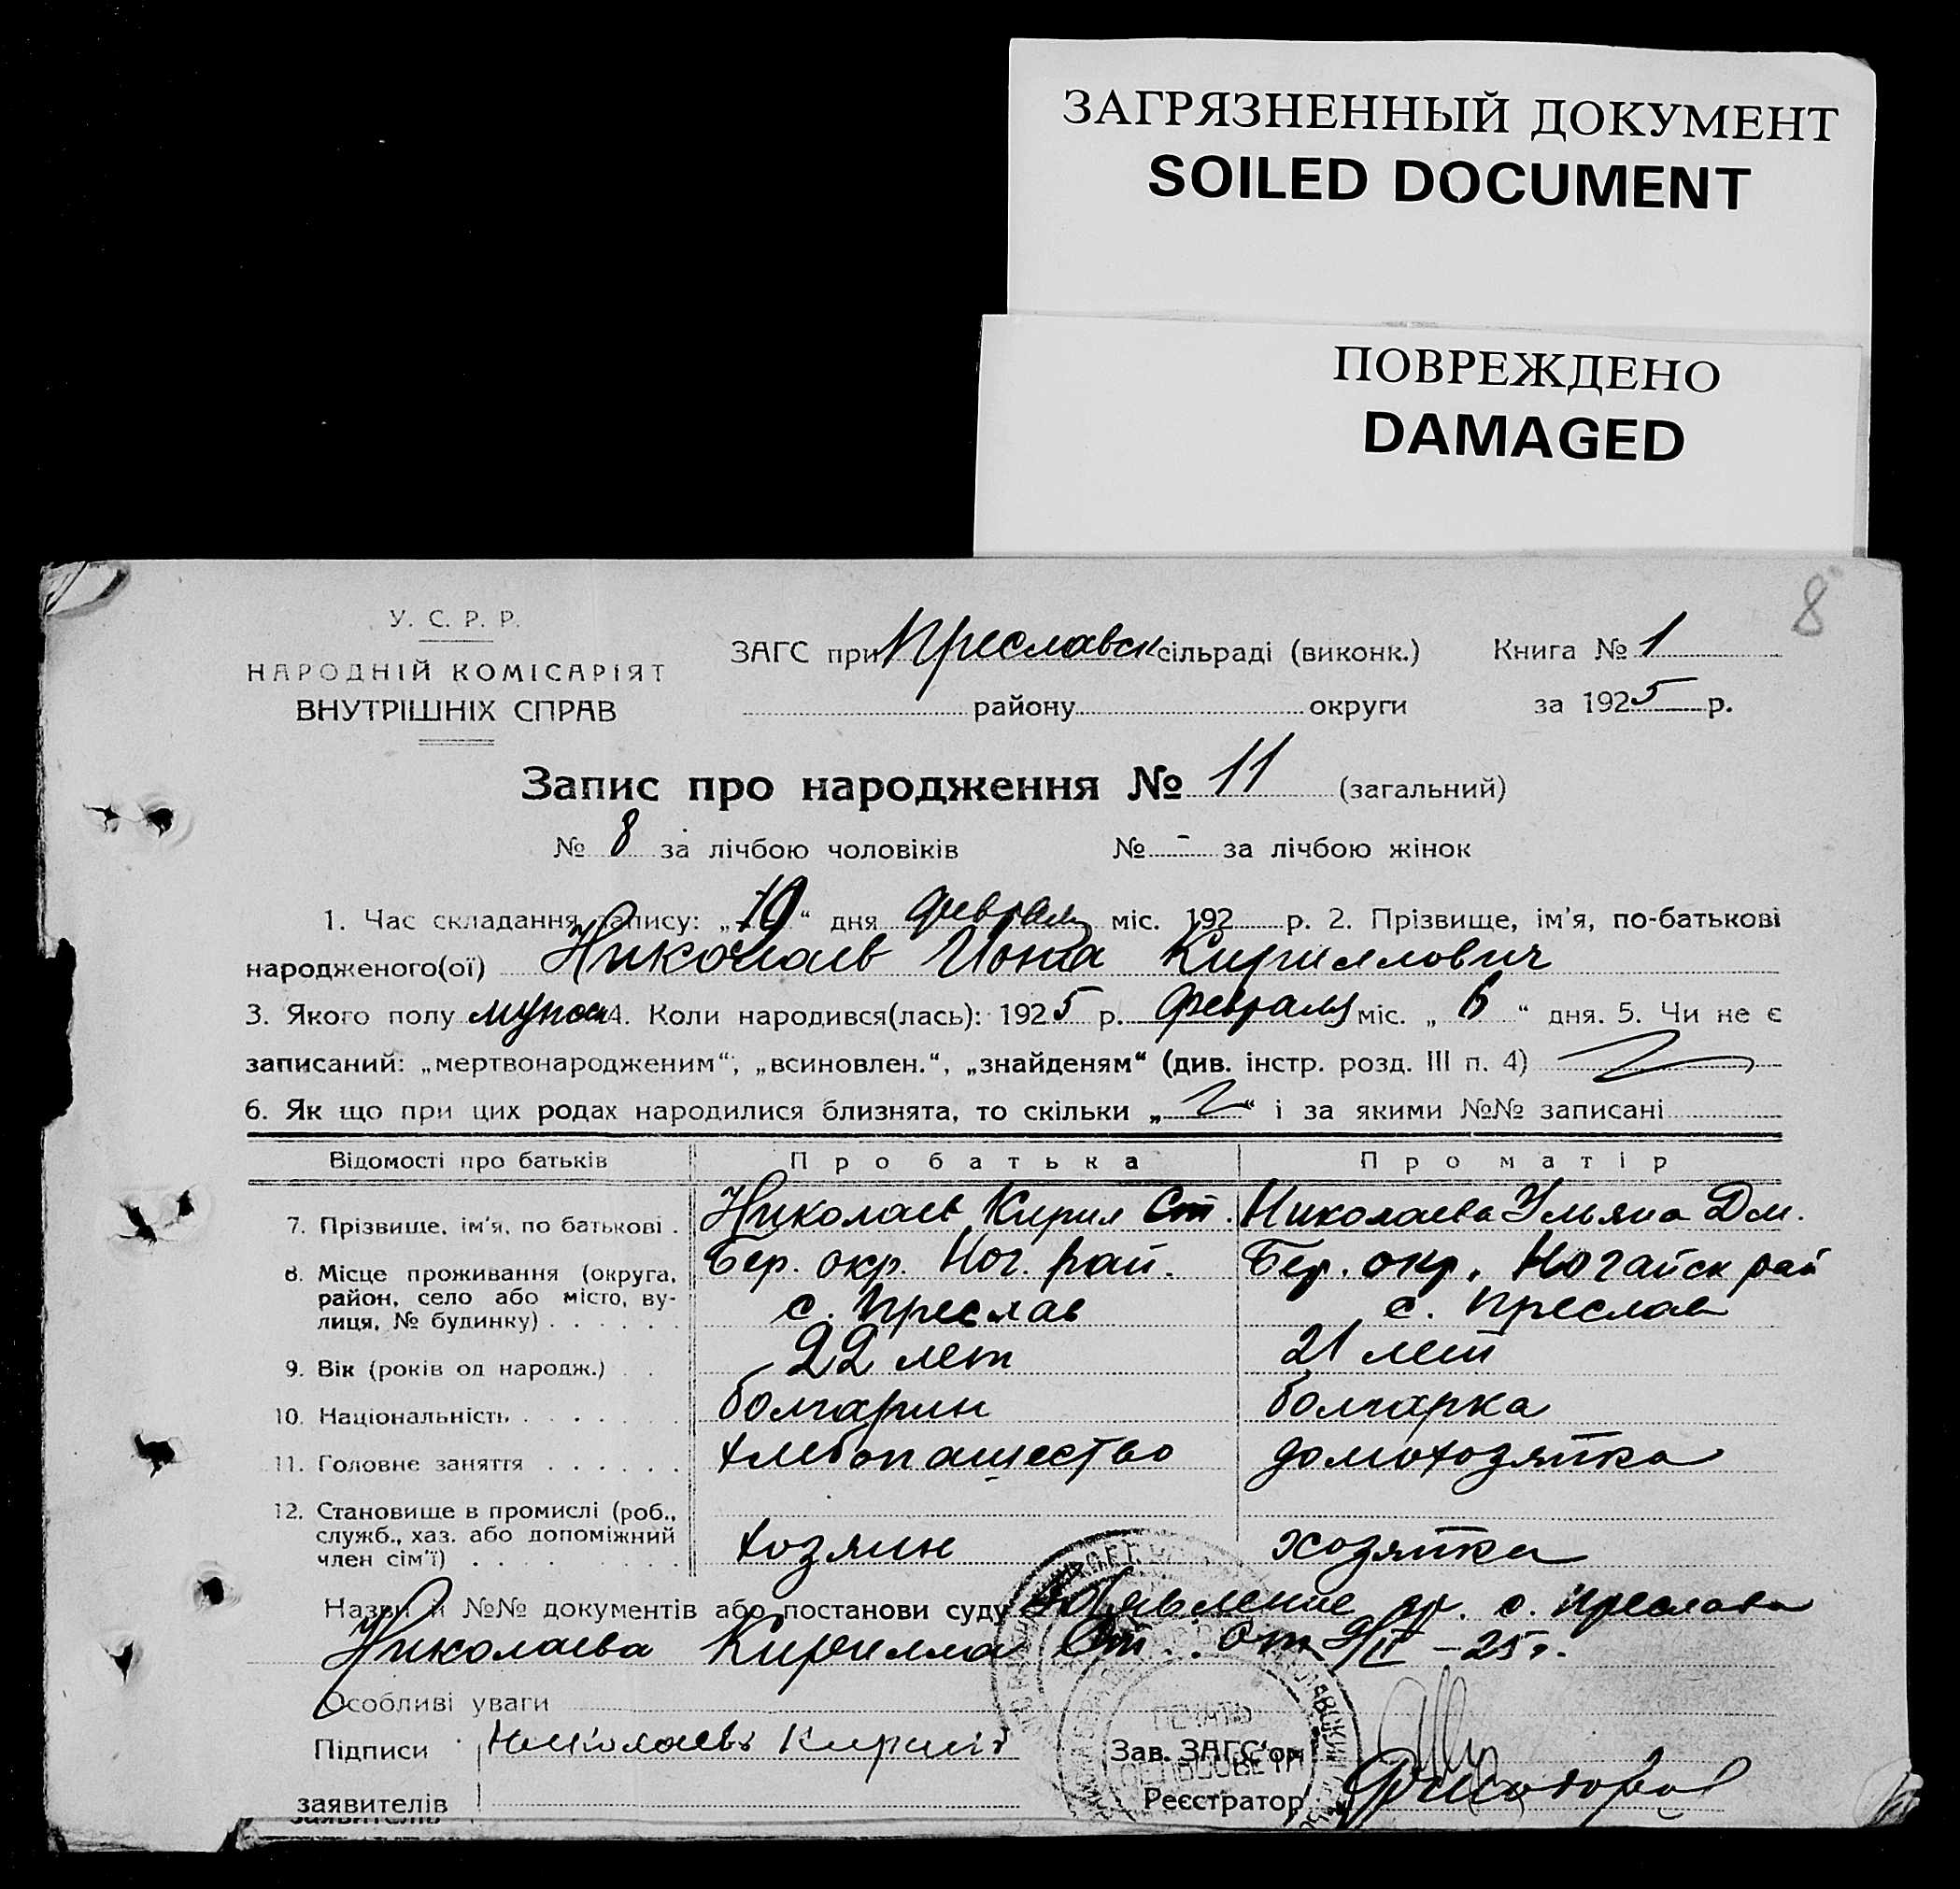 ЗАГРЯЗНЕННЫЙ ДОКУМЕНТ
SOILED DOCUMENT
ПОВРЕЖДЕНО
DAMAGED
8
У. С. Р. Р.
НАРОДНІЙ КОМІСАРІЯТ
ВНУТРІШНІХ СПРАВ
ЗАГС при Преславск сільраді (виконк.) Книга № 1
району округи за 1925 р.
Запис про народження № 11 (загальний)
№ 8 за лічбою чоловіків № - за лічбою жінок
1. Час складання запису: „10“ дня февраля міс. 192 р. 2. Прізвище, ім'я, по-батькові
народженого(ої) Николаев Иона Кириллович
3. Якого полу мужск 4. Коли народився(лась): 1925 р. февраля міс. „6“ дня. 5. Чи не є
записаний: „мертвонародженим“, „всиновлен.“, „знайденям“ (див. інстр. розд. III п. 4)
6. Як що при цих родах народилися близнята, то скільки „ “ і за якими №№ записані
Відомості про батьків Про батька Про матір
7. Прізвище, ім'я, по батькові . Николаев Кирил Ст. Николаева Ульяна Дм.
8. Місце проживання (округа, район, село або місто, вулиця, № будинку) . . . . . . Бер. окр. Ног. рай. Бер. окр. Ногайск рай
с. Преслав с. Преслав
9. Вік (років од народж.) . . 22 лет 21 лет
10. Національність . . . . . . . болгарин болгарка
11. Головне заняття . . . . . . хлебопашество домохозяйка
12. Становище в промислі (роб., служб., хаз. або допоміжний член сім'ї) . . . . . . . хозяин хозяйка
Назви й №№ документів або постанови суду Заявление гр. с. Преслава
Николаева Кирилла Ст. от 9/II – 25 г.
Особливі уваги
Підписи Николаевъ Кирилъ Зав. ЗАГС'ом
ПЕЧАТЬ
заявителів Реєстратор
заявителів